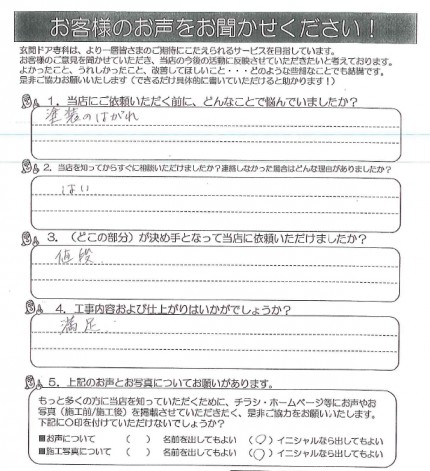 お客様のお声をお聞かせください！
玄関ドア専科は、より一層皆さまのご期待にこたえられるサービスを目指しています。
お客様のご意見を聞かせていただき、当店の今後の活動に反映させていただきたいと考えております。
よかったこと、うれしかったこと、改善してほしいこと・・・どのような些細なことでも結構です。
是非ご協力お願いします（できるだけ具体的に書いていただけると助かります！）
1．当店にご依頼いただく前に、どんなことで悩んでいましたか？
塗装のはがれ
2．当店を知ってからすぐに相談いただけましたか？連絡しなかった場合はどんな理由がありましたか？
はい
3．（どこの部分）が決め手となって当店に依頼いただけましたか？
値段
4．工事内容および仕上がりはいかがでしょうか？
満足
5．上記のお声とお写真についてお願いがあります。
もっと多くの方に当店を知っていただくために、チラシ・ホームページ等にお声やお
写真（施工前/施工後）を掲載させていただきたく、是非ご協力をお願いいたします。
下記に〇印を付けていただけないでしょうか？
■お声について （ ） 名前を出してもよい （〇）イニシャルなら出してもよい
■施工写真について （ ） 名前を出してもよい （〇）イニシャルなら出してもよい